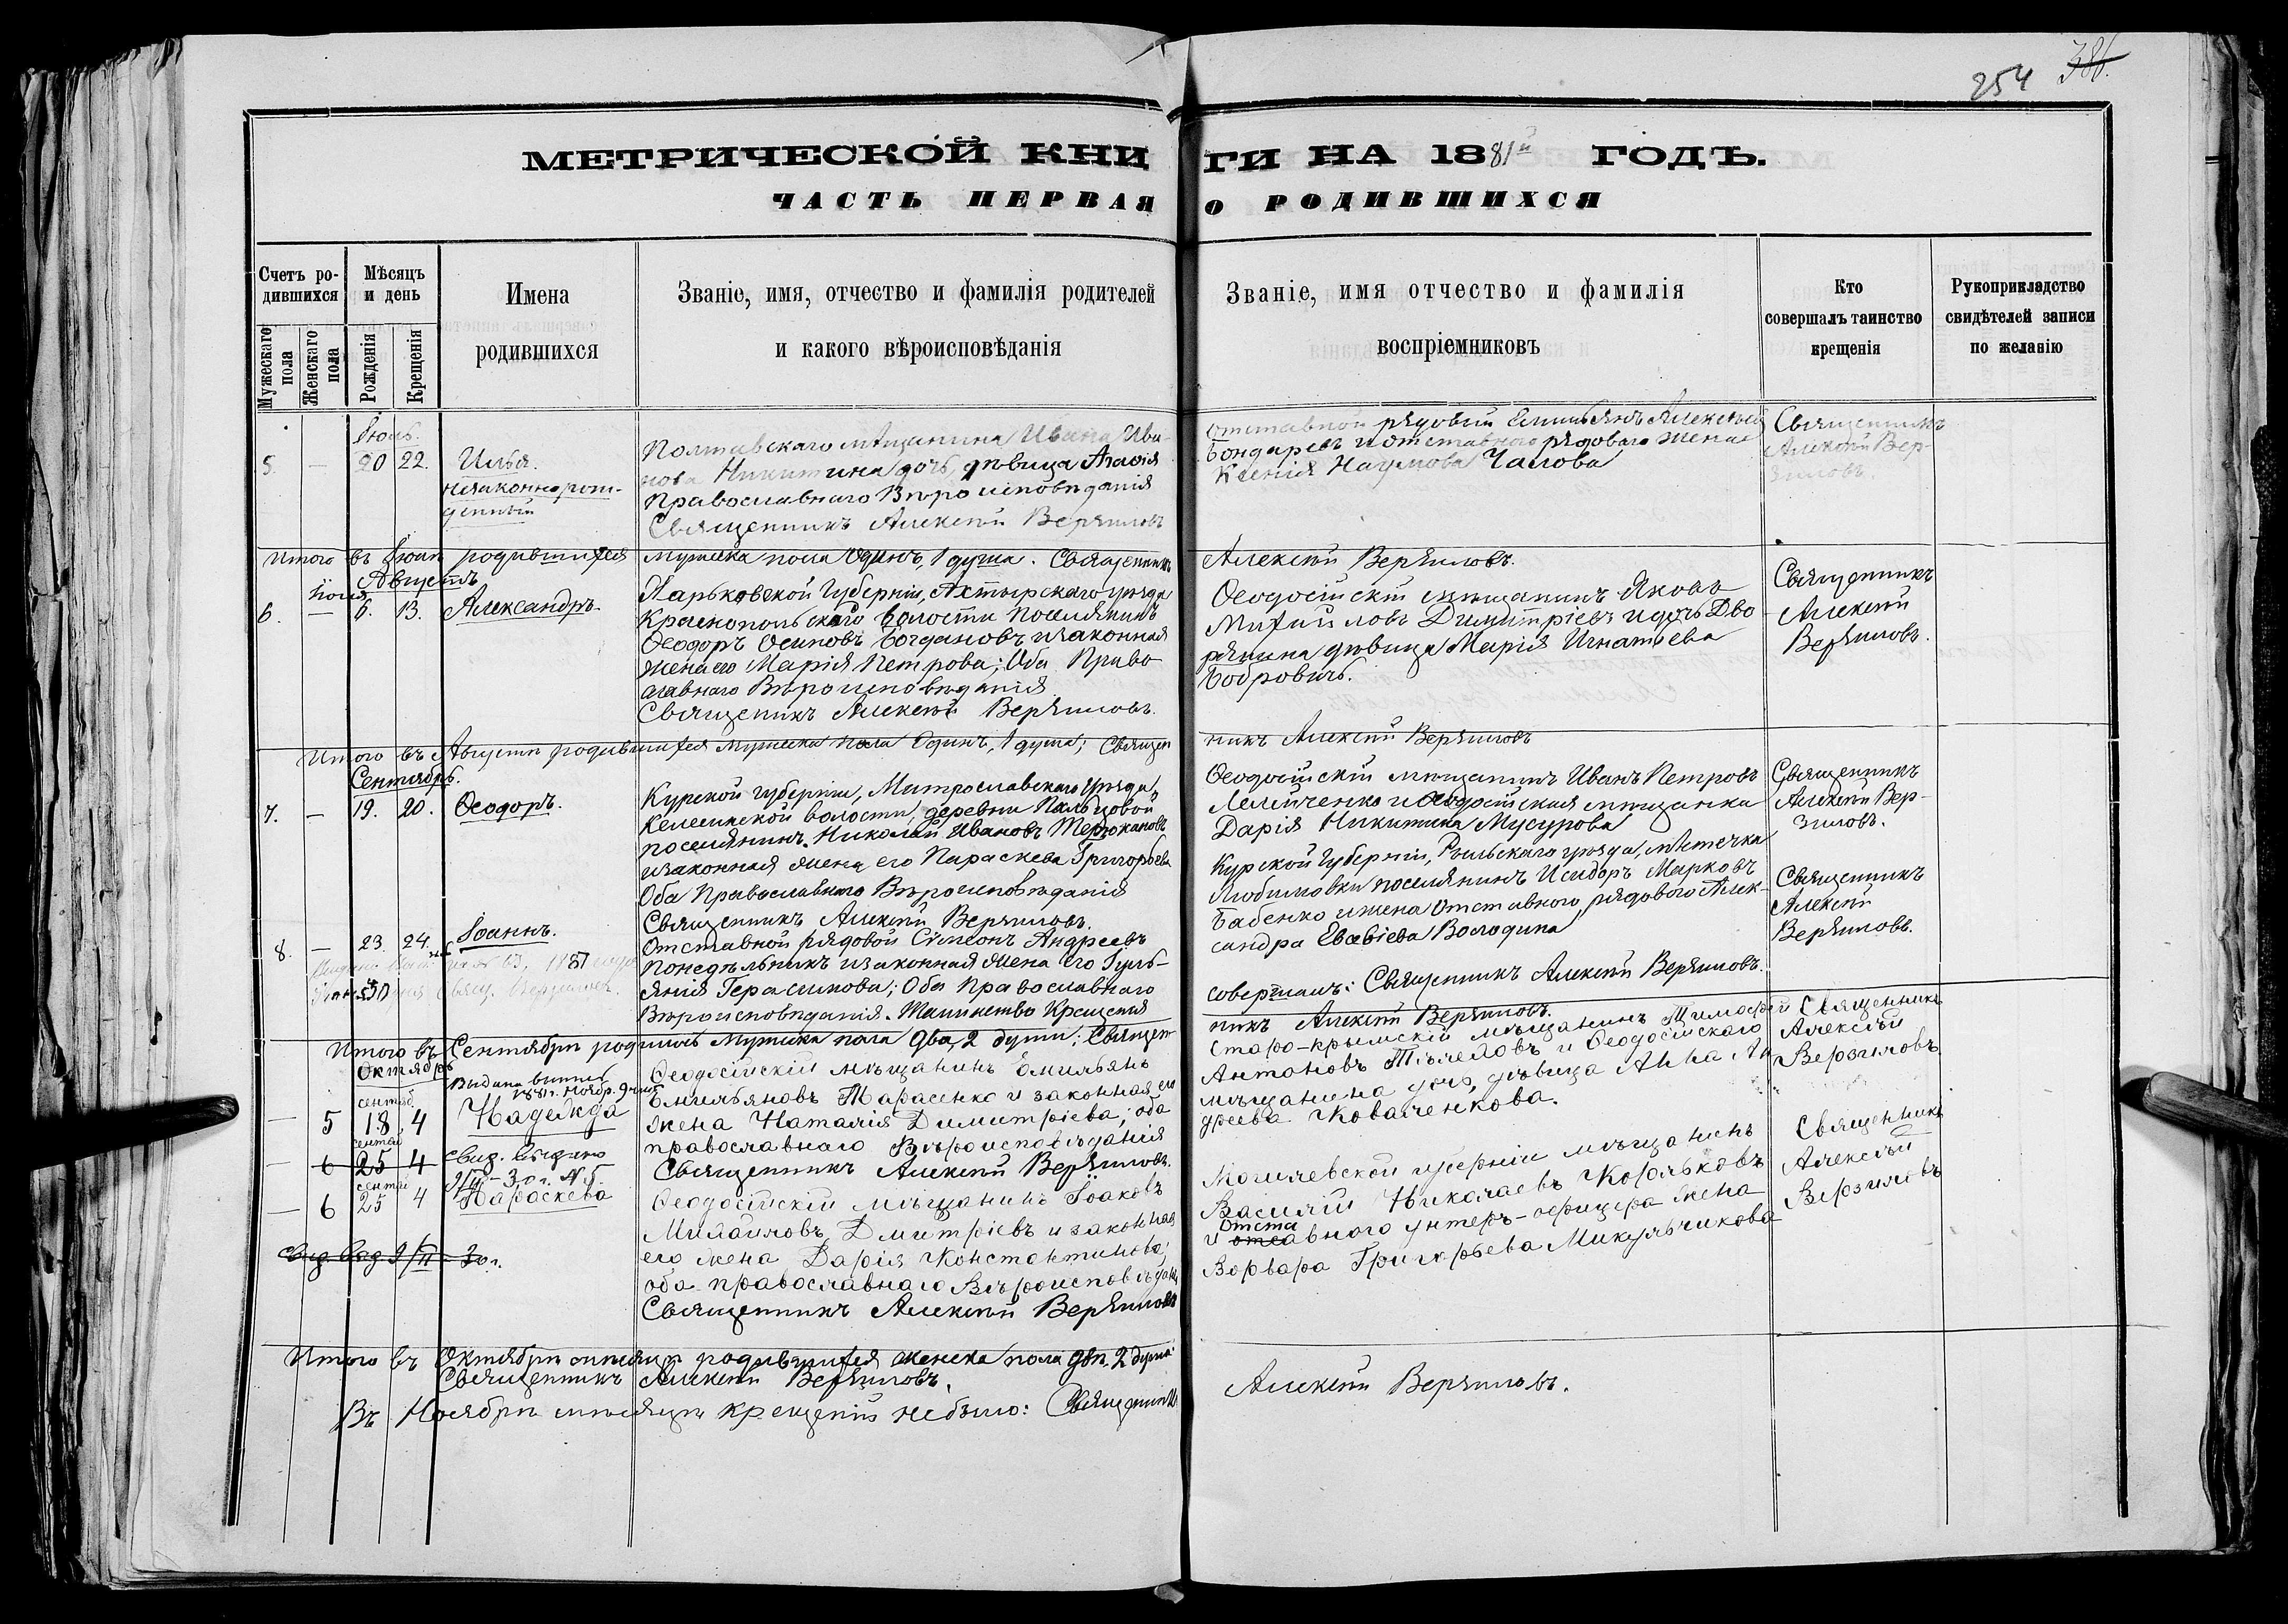 254 386.
МЕТРИЧЕСКОЙ КНИГИ НА 1881й ГОДЪ.
ЧАСТЬ ПЕРВАЯ О РОДИВШИХСЯ
Счетъ родившихся
Мужескаго пола
Женскаго пола
Мѣсяцъ и день
Рожденія
Крещенія
Имена родившихся
Званіе, имя, отчество и фамилія родителей
и какого вѣроисповѣданія
Званіе, имя отчество и фамилія
воспріемниковъ
Кто
совершалъ таинство
крещенія
Рукоприкладство
свидѣтелей записи
по желанію
Іюль.
5. — 20 22. Илья.
незаконнорож-
денный
Полтавскаго мѣщанина Ивана Ива-
нова Никитина дочь, дѣвица
Православнаго Вѣроисповѣданія
Священникъ Алексѣй Верзиловъ
отставной рядовый Емильянъ Алексѣевъ
Бондаревъ и отставного рядоваго жена
Ксенія Наумова Чалова
Священникъ
Алексѣй Вер-
зиловъ.
Итого въ Іюлѣ родившихся мужеска пола Одинъ, 1 душа. Священникъ Алексѣй Верзиловъ.
Августъ
6. — 6. 13. Александръ.
Харьковской Губерніи, Ахтырскаго уѣзда
Краснопольскаго волости поселянинъ
Ѳеодоръ Осиповъ Богдановъ и законная
жена его Марія Петрова; Оба Право
славнаго Вѣроисповѣданія
Священникъ Алексѣй Верзиловъ.
Ѳеодосійскій мѣщанинъ Яковъ
Михайловъ Димитріевъ и дочь Дво
рянина дѣвица Марія Игнатьева
Бобровичъ.
Священникъ
Алексѣй
Верзиловъ.
Итого въ Августѣ родившихся мужеска пола Одинъ, 1 душа; Священ
никъ Алексѣй Верзиловъ
Сентябрь.
7. — 19. 20. Ѳеодоръ.
Курской губерніи, Уѣзда,
волости, деревни
поселянинъ Николай Ивановъ
и законная жена его Параскева Григорьева
Оба Православнаго Вѣроисповѣданія
Священникъ Алексѣй Верзиловъ.
Ѳеодосійскій мѣщанинъ Иванъ Петровъ
и Ѳеодосійская мѣщанка
Дарія Никитина Мусурова
Священникъ
Алексѣй Вер-
зиловъ.
8. — 23. 24. Іоаннъ.
Отставной рядовой Сѵмеонъ Андреевъ
Понедѣльникъ и законная жена его Іуль-
янія Герасимова; Оба Православнаго
Вѣроисповѣданія. Таинство Крещенія
Курской Губерніи, Рыльскаго уѣзда, мѣстечка
Любимовки поселянинъ Исидоръ Марковъ
Бабенко и жена отставного рядового Алек-
сандра Евсевіева Володина
совершалъ: Священникъ Алексѣй Верзиловъ.
Священникъ
Алексѣй
Верзиловъ.
Итого въ Сентябрѣ родилось Мужеска пола два, 2 души; Священ
никъ Алексѣй Верзиловъ.
Октябрь
Выдана
1881 г. Ноябр. 9
сентяб
— 5 18 4 Надежда
Ѳеодосійскій мѣщанинъ Емильянъ
Емильяновъ Тарасенко и законная его
жена Наталія Димитріева; оба
православнаго Вѣроисповѣданія
Священникъ Алексѣй Верзиловъ.
Старо-крымскій мѣщанинъ Тимофей
Антоновъ и Ѳеодосійскаго
мѣщанина дочь, дѣвица Анна Ан
дреева Коваленкова.
Священникъ
Алексѣй
Верзиловъ
сентяб
— 6 25 4 Свид. выдано
сентяб
— 6 25 4 Параскева
Ѳеодосійскій мѣщанинъ Іоаковъ
Михайловъ Дмитріевъ и законная
его жена Дарія Константинова;
оба православнаго Вѣроисповѣдан.
Священникъ Алексѣй Верзиловъ
Могилевской губерніи мѣщанинъ
Василій Николаевъ Корольковъ
и отставного унтеръ-офицера жена
Варвара Григорьева Микульчикова
Священникъ
Алексѣй
Верзиловъ
Итого въ Октябрѣ мѣсяцѣ родившихся женска пола двѣ 2 души
Священникъ Алексѣй Верзиловъ.
Въ Ноябрѣ мѣсяцѣ крещеній не было: Священникъ
Алексѣй Верзиловъ.